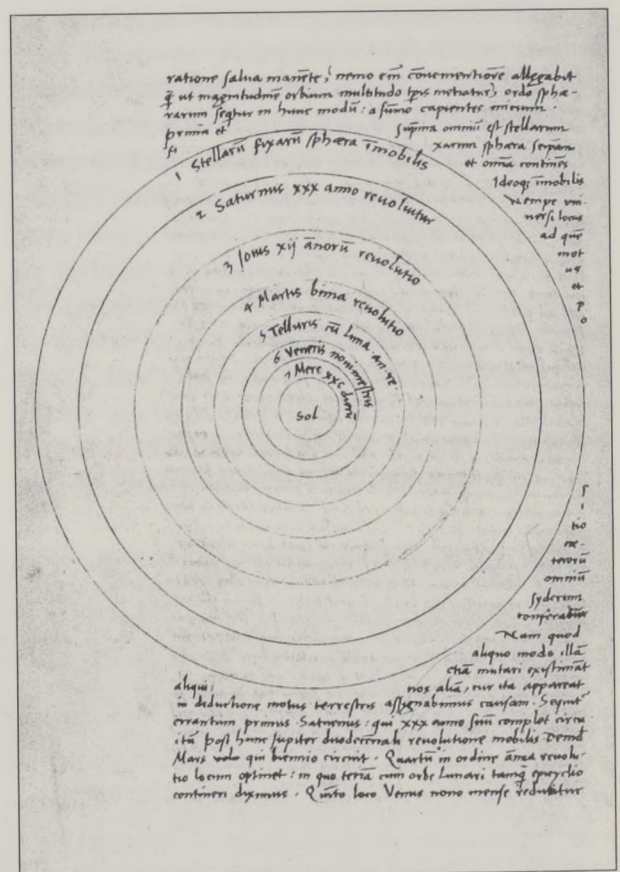 ratione salua manēte, nemo em̄ cōuenientiorē allegabit
q̄ ut magnitudinē orbium multitudo tp̄is metiatur, ordo sphæ-
rarum seq̄tur in hunc modū: a sūmo capientes initium.
prima et suprema omniū est stellarum
fi xarum sphæra seipsam
et oīa continēs
Ideoq; īmobilis
Nempe uni-
uersi locus
ad quē
mot
us
et
p
o
1 Stellarū fixarū sphæra īmobilis
2 Saturnus xxx anno reuoluitur
3 Iouis xij ānorū reuolutio
4 Martis bima reuolutio
5 Telluris cū luna an. re.
6 Veneris nonimestris
7 Merc xxc dierū
Sol
s
i
tio
ne-
terorū
omniū
syderum
conferatur
Nam quod
aliquo modo illā
etiā mutari existimāt
aliqui: nos aliā, cur ita appareat
in deductione motus terrestris assignabimus causam. Sequit̄
errantium primus Saturnus: qui xxx anno suū complet circu
itū post hunc Iupiter duodecennali reuolutione mobilis Demū
Mars qui biennio circuit. Quartū in ordine ānua reuolu-
tio locum optinet: in quo terrā cum orbe Lunari tamq̄ epicyclio
contineri diximus. Quīto loco Venus nono mense reducitur